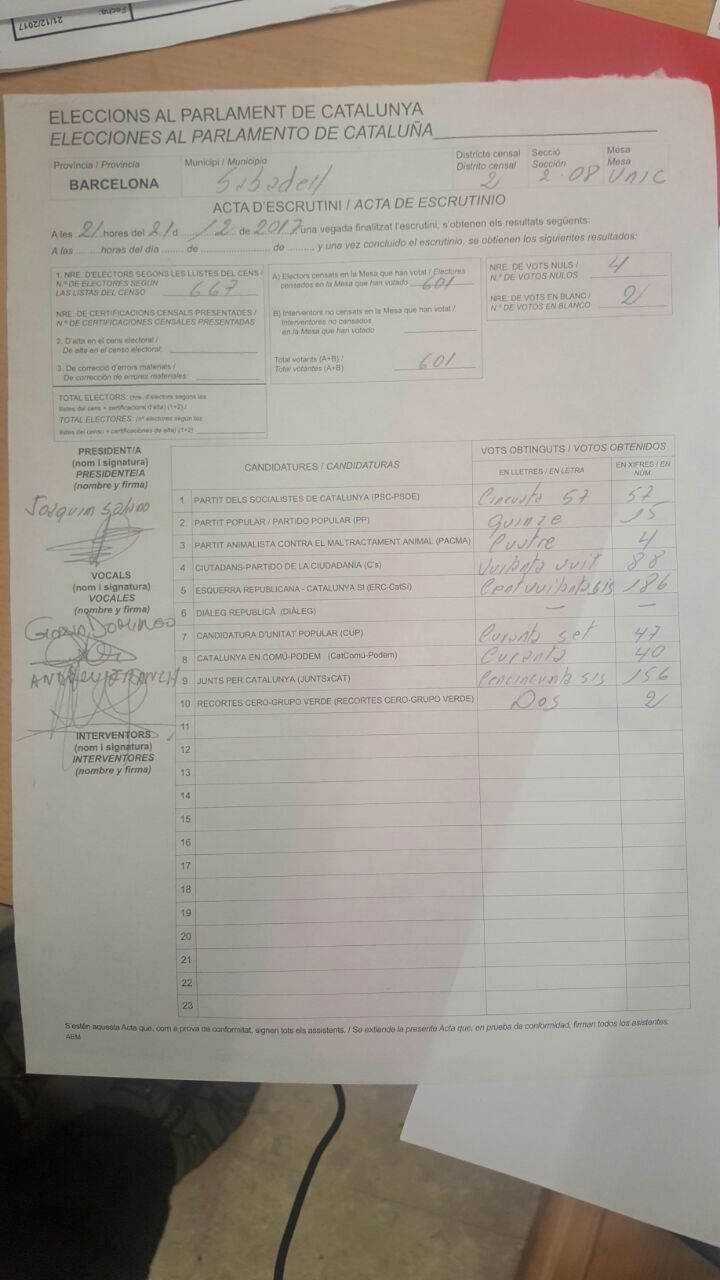 Fecha:
21/12/2017
ELECCIONS AL PARLAMENT DE CATALUNYA
ELECCIONES AL PARLAMENTO DE CATALUÑA
Provincia / Provincia
BARCELONA
Municipi / Municipio
Sabadell
Districte censal
Distrito censal
2
Secció
Sección
2-08
Mesa
Mesa
UNIC
ACTA D'ESCRUTINI / ACTA DE ESCRUTINIO
A les 21 hores del 21 d 12 de 2017, una vegada finalitzat l'escrutini, s'obtenen els resultats següents:
A las ........ horas del día ...... de ............ de ........, y una vez concluido el escrutinio, se obtienen los siguientes resultados:
1. NRE. D'ELECTORS SEGONS LES LLISTES DEL CENS /
N.º DE ELECTORES SEGÚN
LAS LISTAS DEL CENSO 667
NRE. DE CERTIFICACIONS CENSALS PRESENTADES /
N.º DE CERTIFICACIONES CENSALES PRESENTADAS
2. D'alta en el cens electoral /
De alta en el censo electoral:
3. De correcció d'errors materials /
De corrección de errores materiales:
TOTAL ELECTORS: (nre. d'electors segons les
llistes del cens + certificacions d'alta) (1+2) /
TOTAL ELECTORES: (nº electores según las
listas del censo + certificaciones de alta) (1+2)
A) Electors censats en la Mesa que han votat / Electores
censados en la Mesa que han votado 601
B) Interventors no censats en la Mesa que han votat /
Interventores no censados
en la Mesa que han votado
Total votants (A+B) /
Total votantes (A+B) 601
NRE. DE VOTS NULS /
N.º DE VOTOS NULOS 4
NRE. DE VOTS EN BLANC /
N.º DE VOTOS EN BLANCO 2
PRESIDENT/A
(nom i signatura)
PRESIDENTE/A
(nombre y firma)
Joaquim
VOCALS
(nom i signatura)
VOCALES
(nombre y firma)
Domingo
INTERVENTORS
(nom i signatura)
INTERVENTORES
(nombre y firma)
CANDIDATURES / CANDIDATURAS
VOTS OBTINGUTS / VOTOS OBTENIDOS
EN LLETRES / EN LETRA
EN XIFRES / EN NÚM.
1 PARTIT DELS SOCIALISTES DE CATALUNYA (PSC-PSOE) 57
2 PARTIT POPULAR / PARTIDO POPULAR (PP) quinze 15
3 PARTIT ANIMALISTA CONTRA EL MALTRACTAMENT ANIMAL (PACMA) 4
4 CIUTADANS-PARTIDO DE LA CIUDADANÍA (C's) Vuitanta vuit 88
5 ESQUERRA REPUBLICANA - CATALUNYA SÍ (ERC-CatSí) Centvuitantasis 186
6 DIÀLEG REPUBLICÀ (DIÀLEG) — —
7 CANDIDATURA D'UNITAT POPULAR (CUP) Curanta set 47
8 CATALUNYA EN COMÚ-PODEM (CatComú-Podem) Curanta 40
9 JUNTS PER CATALUNYA (JUNTSxCAT) 156
10 RECORTES CERO-GRUPO VERDE (RECORTES CERO-GRUPO VERDE) Dos 2
11
12
13
14
15
16
17
18
19
20
21
22
23
S'estén aquesta Acta que, com a prova de conformitat, signen tots els assistents. / Se extiende la presente Acta que, en prueba de conformidad, firman todos los asistentes.
AEM